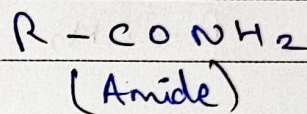 R - CONH2
(Amide)